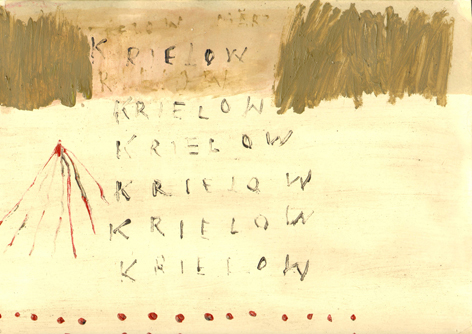 KRIELOW
KRIELOW
KRIELOW
KRIELOW
KRIELOW
KRIELOW